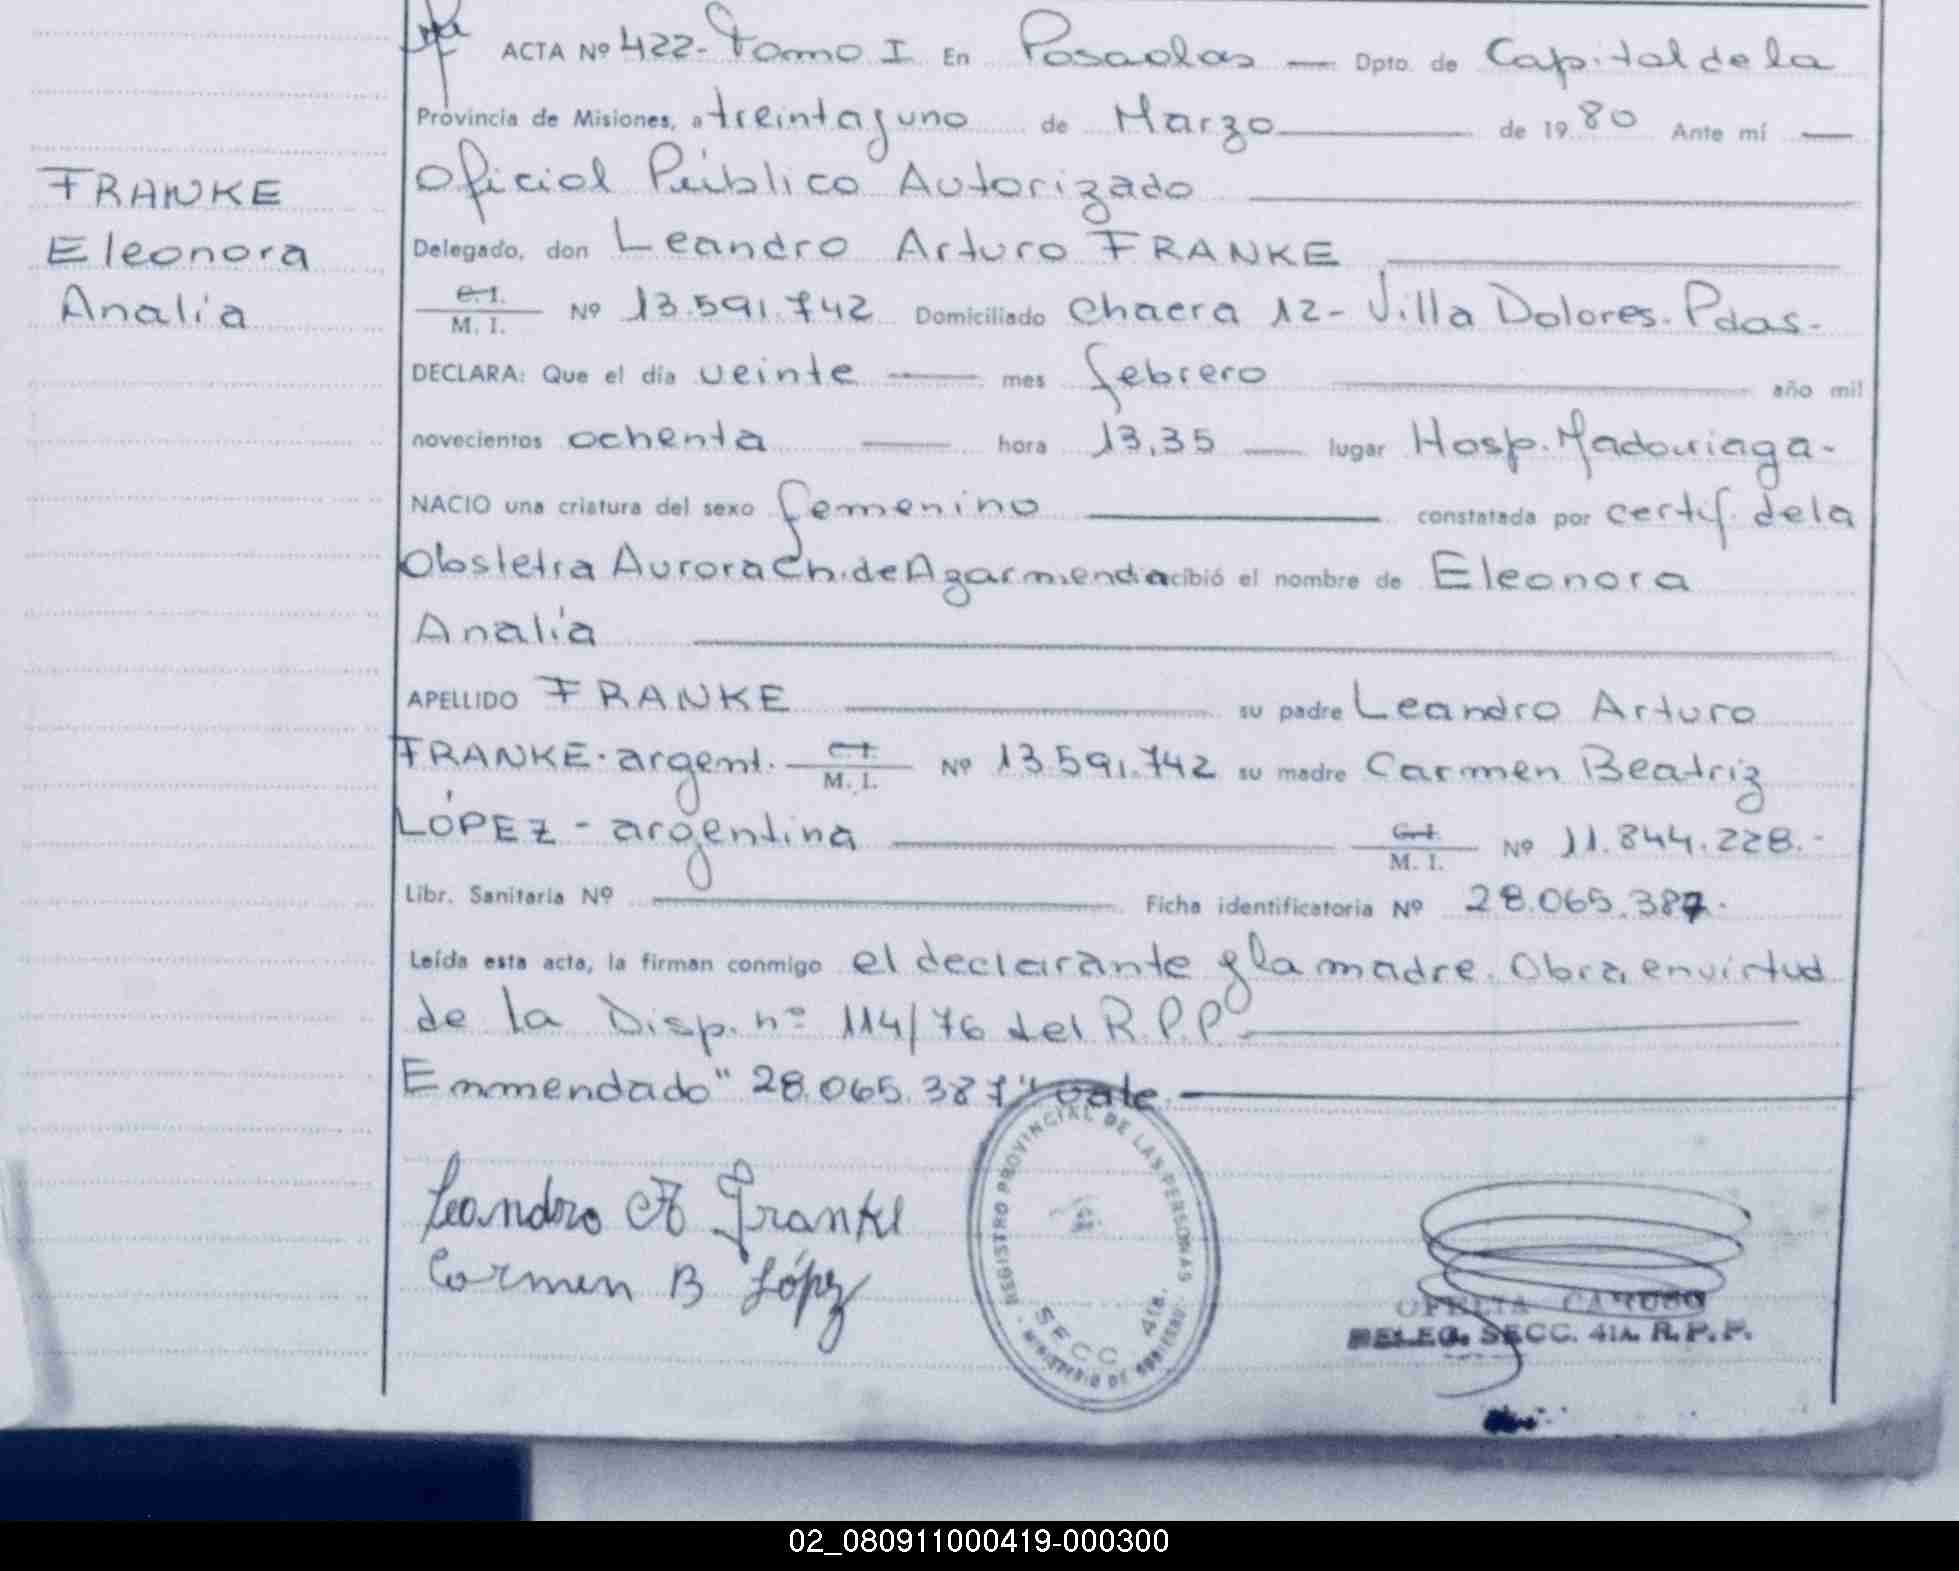 ACTA Nº 422- Tomo I En Posadas — Dpto. de Capital de la
Provincia de Misiones, a treinta y uno de Marzo de 1980 Ante mí —
Oficial Público Autorizado
FRANKE
Eleonora
Analía
Delegado, don Leandro Arturo FRANKE
C.I.
M. I. Nº 13.591.742 Domiciliado Chacra 12- Villa Dolores. Pdas.-
DECLARA: Que el día veinte — mes febrero año mil
novecientos ochenta — hora 13,35 — lugar Hosp. Madariaga-
NACIO una criatura del sexo femenino constatada por certif. de la
Obstetra Aurora Ch. de Agarmendia cibió el nombre de Eleonora
Analía
APELLIDO FRANKE su padre Leandro Arturo
FRANKE. argent. C.I.
M. I. Nº 13.591.742 su madre Carmen Beatriz
LÓPEZ - argentina C.I.
M. I. Nº 11.844.228.-
Libr. Sanitaria Nº Ficha identificatoria Nº 28.065.387.
Leída esta acta, la firman conmigo el declarante y la madre. Obra en virtud
de la Disp. nº 114/76 del R.P.P.
Emmendado "28.065.387" vale.
Leandro A Franke
Carmen B López
REGISTRO PROVINCIAL DE LAS PERSONAS
SECC. 4ta.
MINISTERIO DE GOBIERNO
OFELIA CARUSO
DELEG. SECC. 41A. R.P.P.
02_080911000419-000300